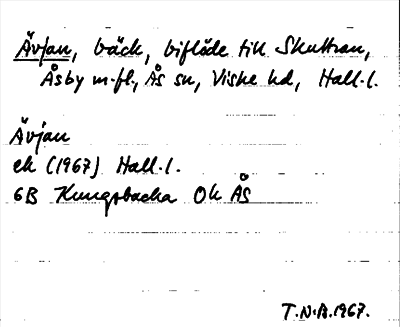 Ävjan, bäck, biflöde till Skuttran,
Åsby m.fl., Ås sn, Viske hd, Hall.l.
Ävjan
ek (1967) Hall.l.
6B Kungsbacka Ok Ås
T.N.B.1967.